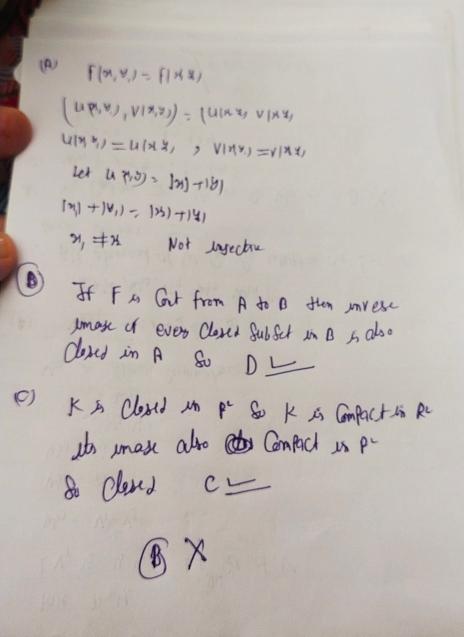 (A) F(x1,y1) = F(x2,y2)
(u(x1,y1), v(x1,y1)) = (u(x2, v(x2,
u(x1,y1) = u(x2, , v(x1,y1) = v(x2,
Let u(x,y) = |x|+|y|
|x1| + |y1| = |x|+|y|
x1 ≠ x Not injective
(B) If F is Cont from A to B then inverse
image of every Closed SubSet in B is also
Closed in A So D ✓
(C) K is Closed in R² So K is Compact in R²
its image also Compact in R²
So Closed C ✓
(B) X